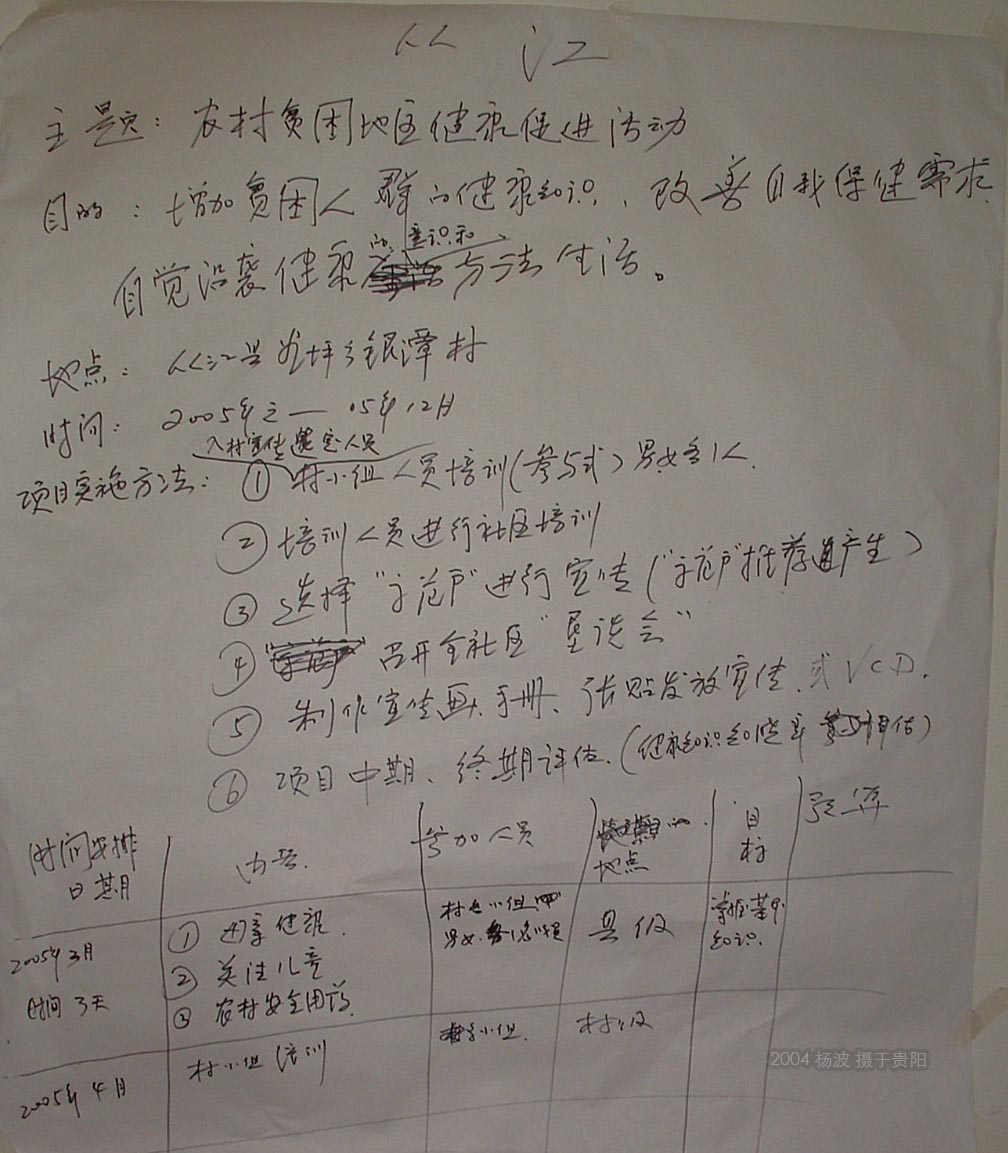 从江
主题：农村贫困地区健康促进活动
目的：增加贫困人群的健康知识、改善自我保健需求
的、意识和
自觉沿袭健康方法生活。
地点：从江县 坪乡银潭村
时间：2005年之—05年12月
入村宣传选定人员
项目实施方法：① 村小组人员培训(参与式)男女各1人.
② 培训人员进行社区培训
③ 选择“示范户”进行宣传(“示范户”推荐产生)
④ 召开全社区“座谈会”
⑤ 制作宣传画、手册、张贴发放宣传.或VCD.
⑥ 项目中期、终期评估.(健康知识知晓率 评估)
时间安排 日期 内容. 参加人员 地点 目标 预算
2005年3月 时间3天
① 母亲健康.
② 关注儿童
③ 农村安全用药.
村 小组 男女.各1名
县级
掌握基本知识.
2005年4月 村小组培训 小组. 村级
2004 杨波 摄于贵阳